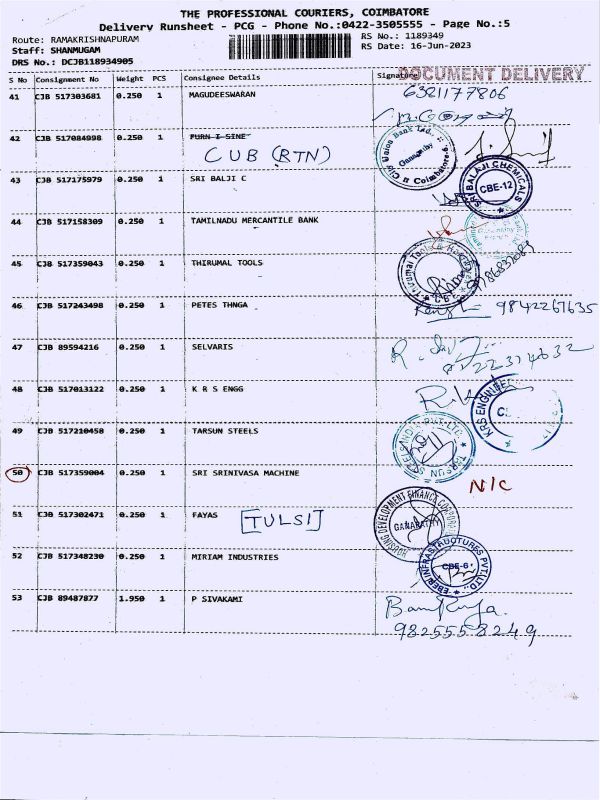 THE PROFESSIONAL COURIERS, COIMBATORE
Delivery Runsheet - PCG - Phone No.:0422-3505555 - Page No.:5
Route: RAMAKRISHNAPURAM RS No.: 1189349
Staff: SHANMUGAM RS Date: 16-Jun-2023
DRS No.: DCJB118934905
S No Consignment No Weight PCS Consignee Details Signature DOCUMENT DELIVERY
41 CJB 517303681 0.250 1 MAGUDEESWARAN 6321177806
42 CJB 517084998 0.250 1 FURN I SINE
CUB (RTN) City Union Bank Ltd., Ganapathy Coimbatore-6
43 CJB 517175979 0.250 1 SRI BALJI C SRI BALAJI CHEMICALS CBE-12
44 CJB 517158309 0.250 1 TAMILNADU MERCANTILE BANK
45 CJB 517359043 0.250 1 THIRUMAL TOOLS
46 CJB 517243498 0.250 1 PETES THNGA 9842267635
47 CJB 89594216 0.250 1 SELVARIS
48 CJB 517013122 0.250 1 K R S ENGG KRS ENGINEE
49 CJB 517210458 0.250 1 TARSUN STEELS TARSUN STEELS INDIA PVT. LTD.
50 CJB 517359004 0.250 1 SRI SRINIVASA MACHINE N/C
51 CJB 517302471 0.250 1 FAYAS [TULSI] HOUSING DEVELOPMENT FINANCE CORPORATION GANAPATHY
52 CJB 517348230 0.250 1 MIRIAM INDUSTRIES INFRASTRUCTURES PVT.LTD. CBE-6
53 CJB 89487877 1.950 1 P SIVAKAMI
9825558249